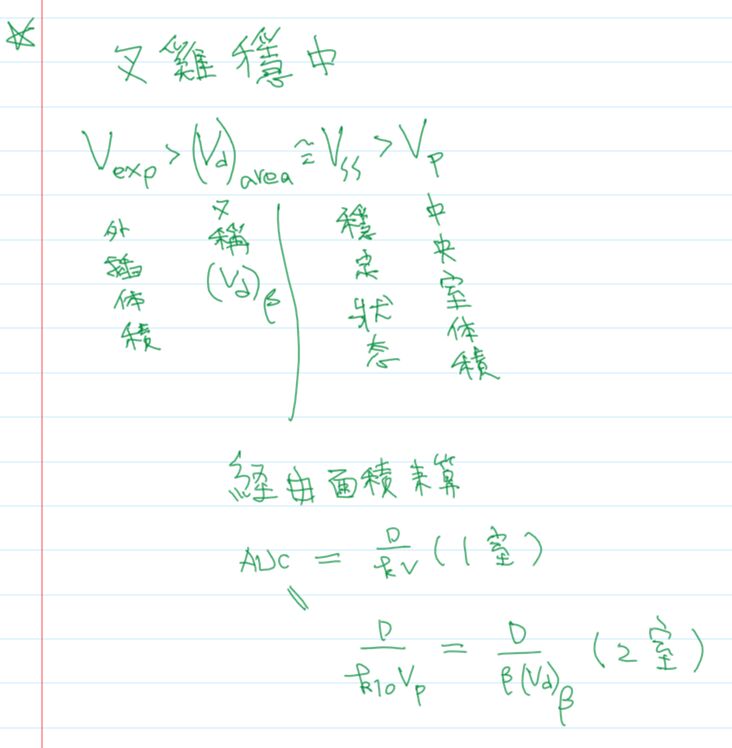 又雞穩中
V_exp > (V_d)_area ≈ V_ss > V_p
外插体積
又稱 (V_d)_β
穩定狀态
中央室体積
経由面積来算
AUC = D/kV (1室)
D/k_10 V_p = D/β(V_d)_β (2室)